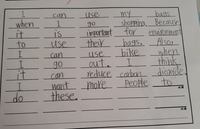 I can use my bags
when I go shopping. Because
it is important for environment
to use their bags. Also,
I can use bike when
I go out. I think
it can reduce carbon dioxide.
I want more people to
do these.